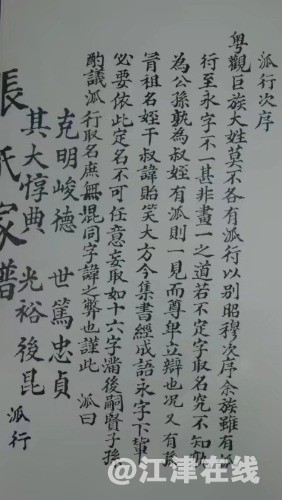 派行次序
粤觀巨族大姓莫不各有派行以别昭穆次序余族雖有派
行至永字不一甚非畫一之道若不定字取名究不知孰
為公孫孰為叔姪有派則一見而尊卑立辯也况又有孫
冒祖名姪干叔諱貽笑大方今集書經成語永字下輩
必要依此定名不可任意妄取如十六字滿後嗣賢子孫
酌議派行取名庶無混同字諱之弊也謹此 派曰
克明峻德 世篤忠貞
其大惇典 光裕後昆 派行
張氏家譜
@江津在线